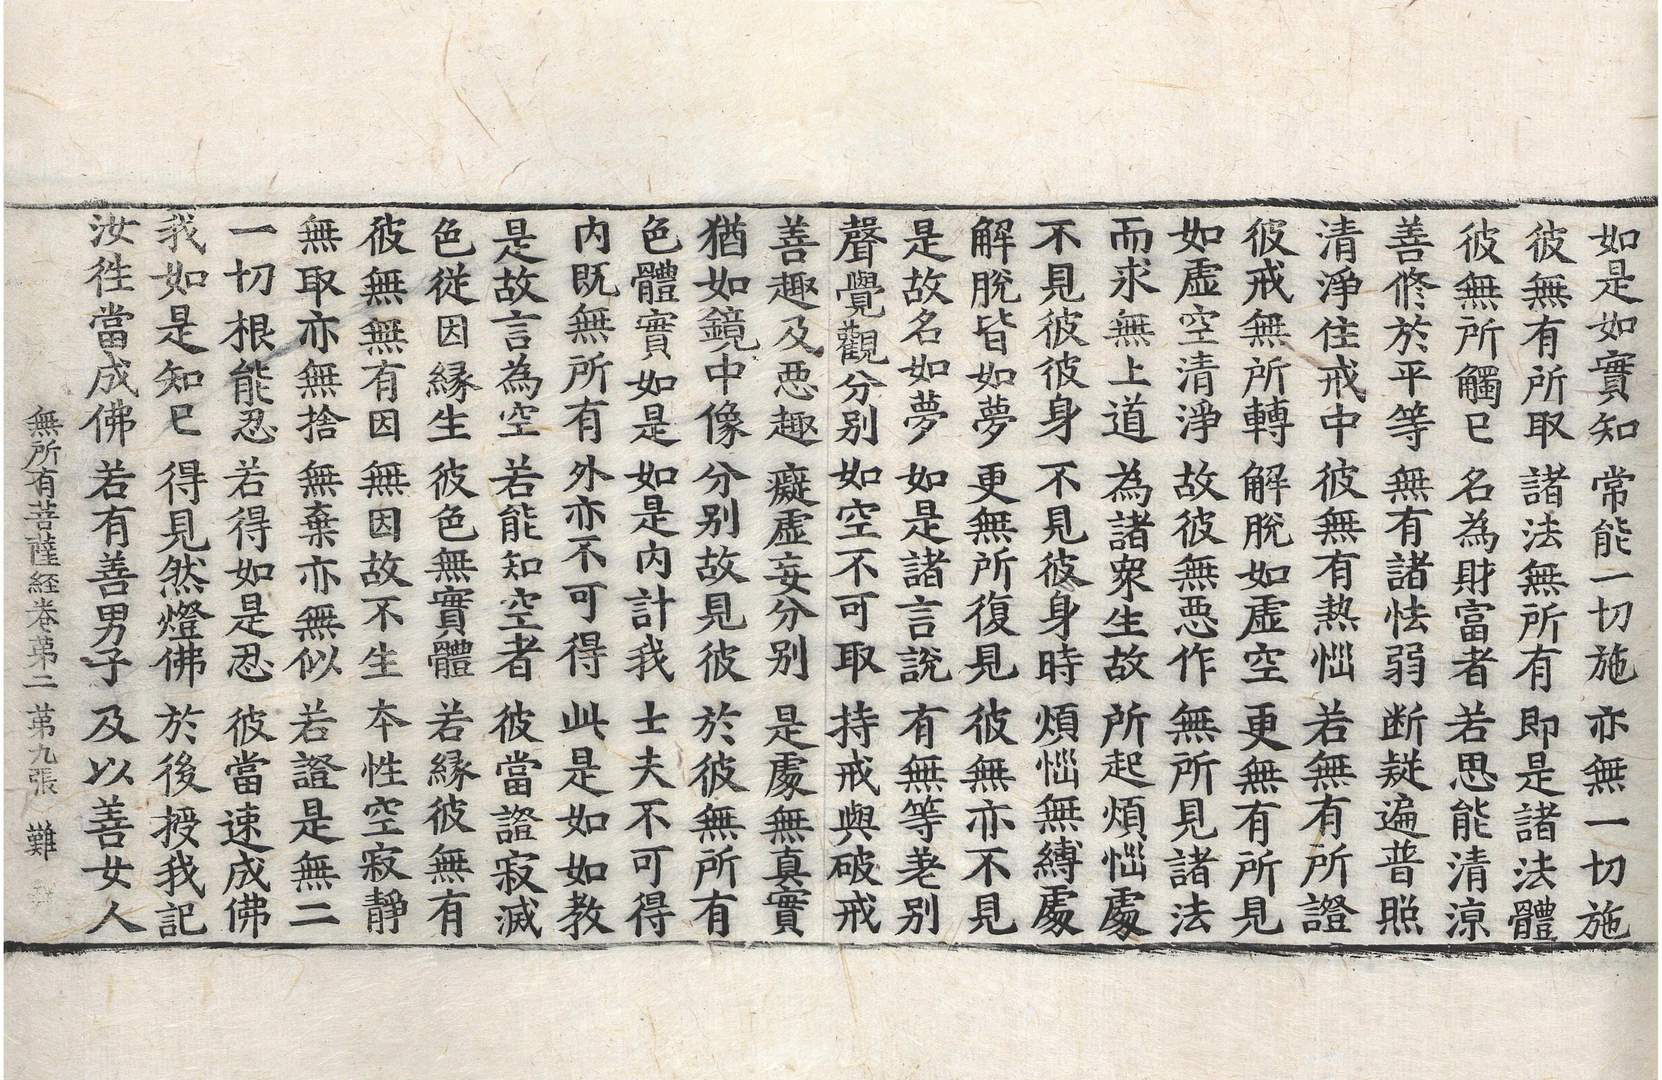 如是如實知 常能一切施 亦無一切施
彼無有所取 諸法無所有 即是諸法體
彼無所觸已 名為財富者 若思能清涼
善修於平等 無有諸怯弱 断疑遍普照
清淨住戒中 彼無有熱惱 若無有所證
彼戒無所轉 解脫如虛空 更無有所見
如虛空清淨 故彼無惡作 無所見諸法
而求無上道 為諸眾生故 所起煩惱處
不見彼彼身 不見彼身時 煩惱無縛處
解脫皆如夢 更無所復見 彼無亦不見
是故名如夢 如是諸言說 有無等差別
聲覺觀分別 如空不可取 持戒與破戒
善趣及惡趣 癡虛妄分別 是處無真實
猶如鏡中像 分別故見彼 於彼無所有
色體實如是 如是內計我 士夫不可得
內既無所有 外亦不可得 此是如如教
是故言為空 若能知空者 彼當證寂滅
色從因緣生 彼色無實體 若緣彼無有
彼無無有因 無因故不生 本性空寂靜
無取亦無捨 無棄亦無似 若證是無二
一切根能忍 若得如是忍 彼當速成佛
我如是知已 得見然燈佛 於後授我記
汝往當成佛 若有善男子 及以善女人
無所有菩薩経卷第二 第九張 難